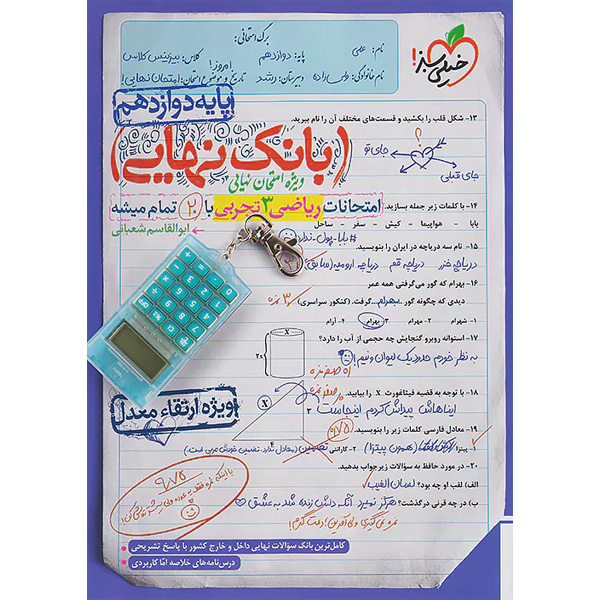 خیلی سبز!
برگ امتحانی:
نام: علی
پایه: دوازدهم
کلاس: بیزینس کلاس
نام خانوادگی:
دبیرستان: رشد
تاریخ و موضوع امتحان: امتحان نهایی!
امروز!
پایه دوازدهم
۱۳- شکل قلب را بکشید و قسمت‌های مختلف آن را نام ببرید.
(بانک نهایی)
ویژه امتحان نهایی
جای تو
جای قبلی
۱۴- با کلمات زیر جمله بسازید.
امتحانات ریاضی ۳ تجربی با ۲۰ تمام میشه
ابوالقاسم شعبانی
بابا - هواپیما - کیش - سفر - ساحل
#بابا-پول-نداره
۱۵- نام سه دریاچه در ایران را بنویسید.
دریاچه خزر دریاچه قم دریاچه ارومیه (سابق)
۱۶- بهرام که گور می‌گرفتی همه عمر
دیدی که چگونه گور بهرام گرفت. (کنکور سراسری)
۳ نمره
۱- شهرام ۲- مهرام ۳- بهرام ۴- آرام
۱۷- استوانه روبرو گنجایش چه حجمی از آب را دارد؟
X
به نظر خودم حدود یک لیوان و نیم!
۱۸- با توجه به قضیه فیثاغورث X را بیابید.
X
۳
ایناهاش پیداش کردم اینجاست
ویژه ارتقاء معدل
۱۹- معادل فارسی کلمات زیر را بنویسید.
(همون پیتزا) ۲- گارانتی تضمین
۲۰- در مورد حافظ به سؤالات زیر جواب بدهید.
الف) لقب او چه بود؟ لسان الغیب
ب) در چه قرنی درگذشت؟ هرگز نمیرد آنکه دلش زنده شد به عشق
۹/۷۵
کامل‌ترین بانک سؤالات نهایی داخل و خارج کشور با پاسخ تشریحی
درس‌نامه‌های خلاصه امّا کاربردی